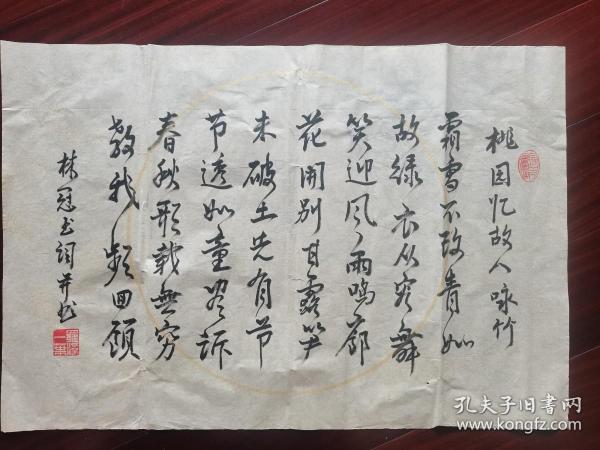 桃园忆故人 咏竹
霜雪不改青如
故绿衣从容舞
笑迎风雨鸣
花开别甘露笋
未破土先有节
节透如童诉
春秋形载无穷
教我频回顾
林冠玉词并书
孔夫子旧书网
www.kongfz.com